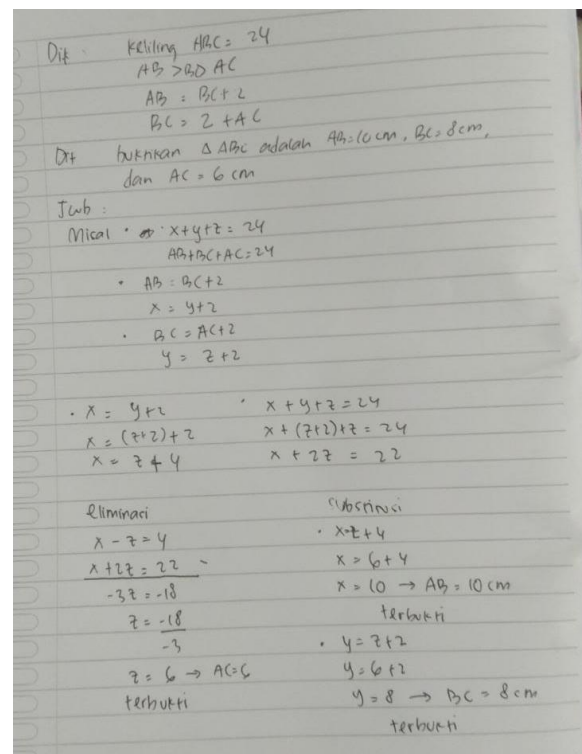 Dik : Keliling ABC = 24
AB > BC > AC
AB = BC + 2
BC = 2 + AC
Dit buktikan Δ ABC adalah AB = 10 cm, BC = 8 cm,
dan AC = 6 cm
Jwb :
Misal • x + y + z = 24
AB + BC + AC = 24
• AB = BC + 2
x = y + 2
• BC = AC + 2
y = z + 2
• x = y + 2
x = (z + 2) + 2
x = z + 4
• x + y + z = 24
x + (z + 2) + z = 24
x + 2z = 22
eliminasi
x - z = 4
x + 2z = 22 -
-3z = -18
z = -18
-3
z = 6 → AC = 6
terbukti
substitusi
• x = z + 4
x = 6 + 4
x = 10 → AB = 10 cm
terbukti
• y = z + 2
y = 6 + 2
y = 8 → BC = 8 cm
terbukti